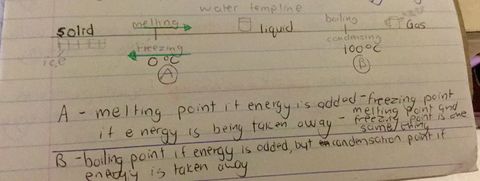 water templine
solid melting liquid boiling Gas
freezing condensing
ice 0°C 100°C
A B
A - melting point if energy is added - freezing point
if energy is being taken away - melting point and
freezing point is one
same thing
B - boiling point if energy is added, but condensation point if
energy is taken away